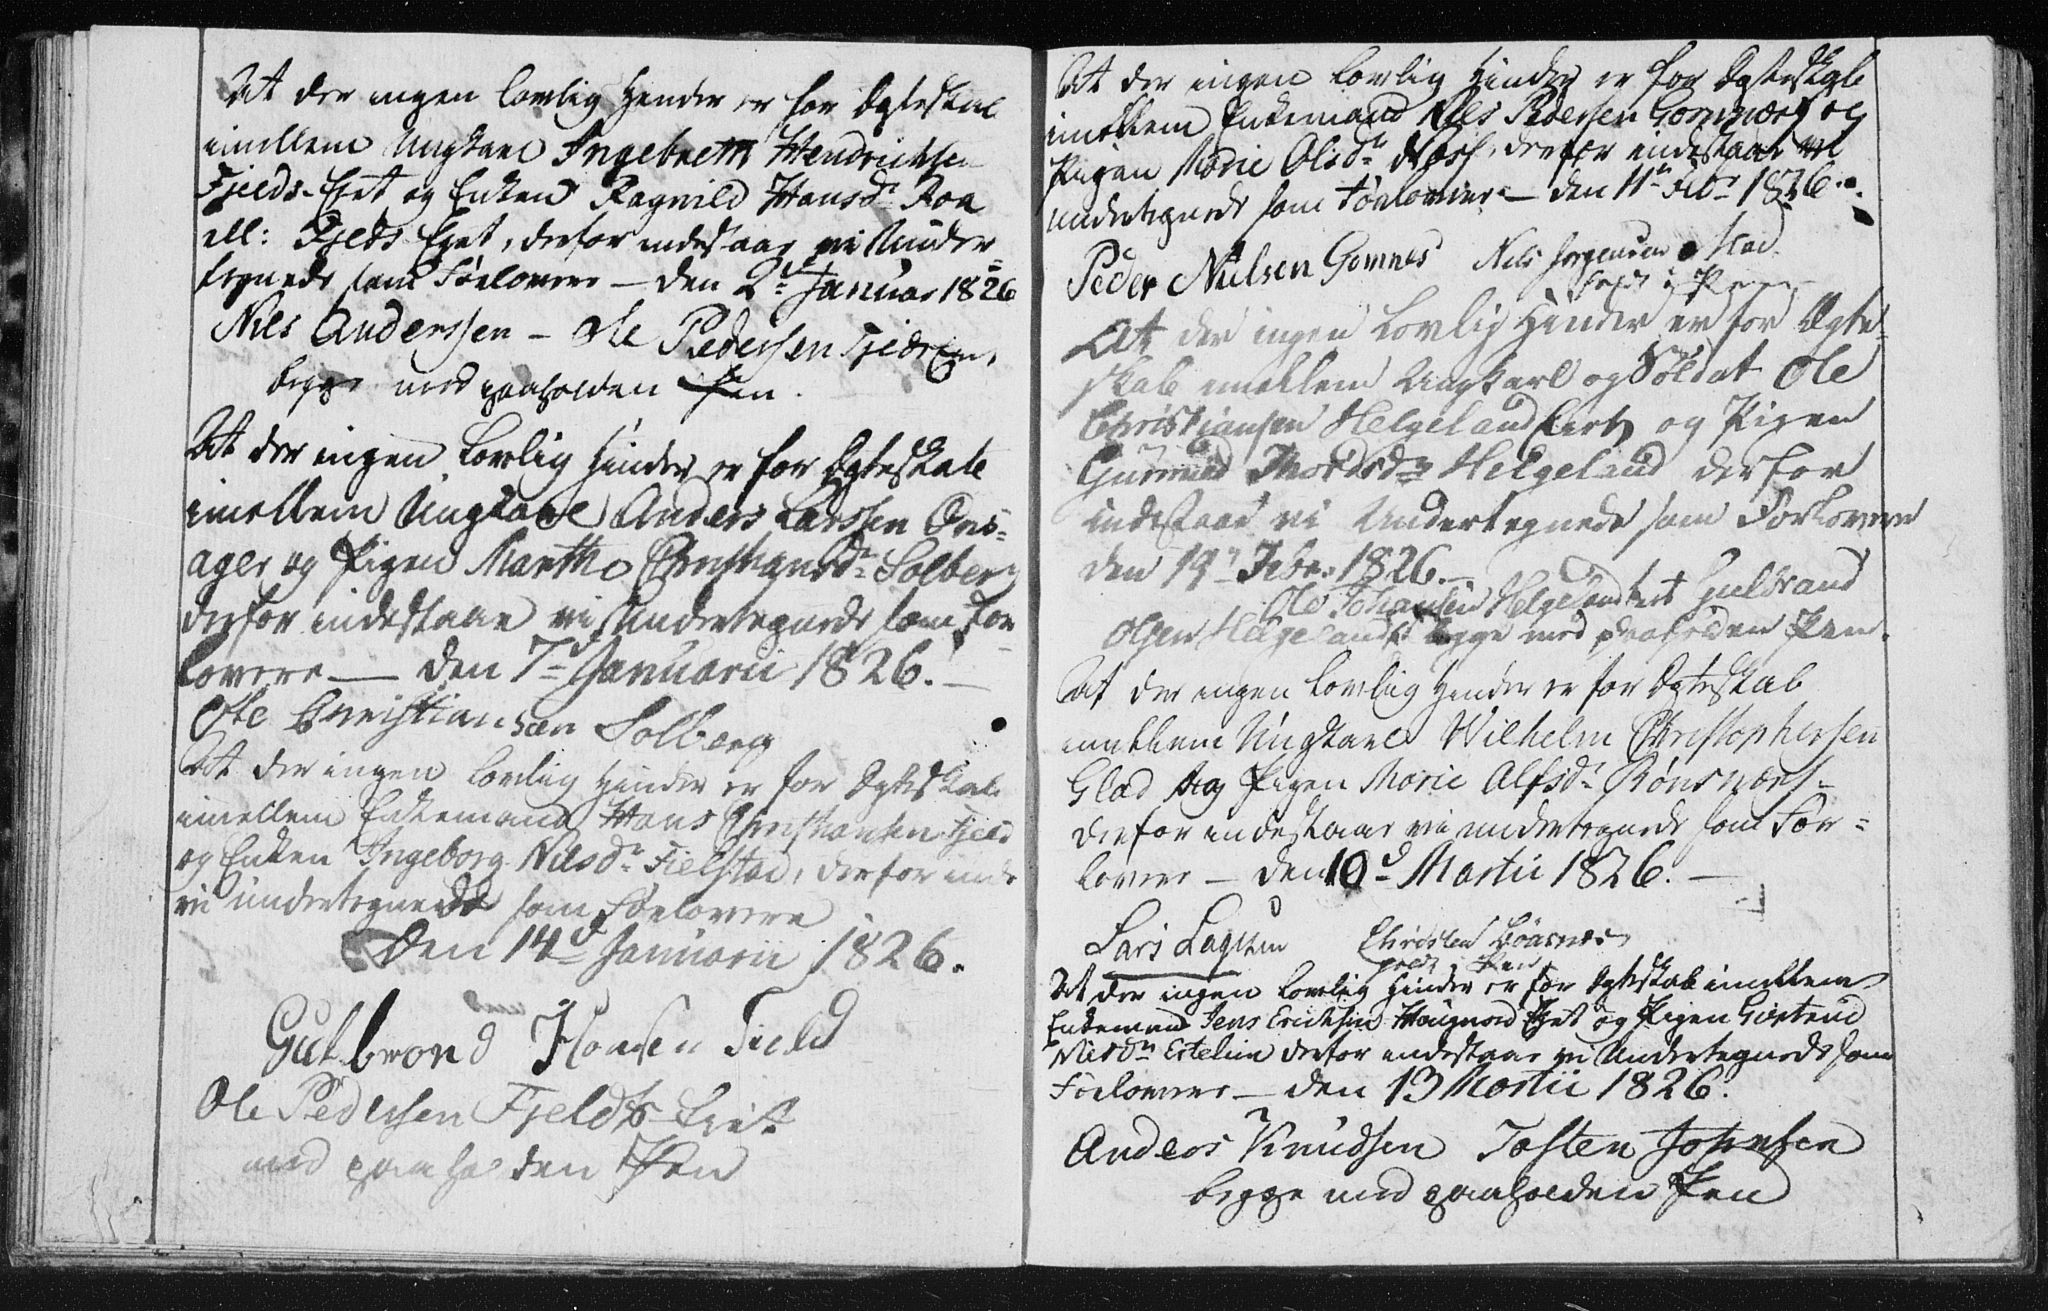 At der ingen lovlig Hinder er for Ægteskab
imellem Ungkarl Ingebreth Hendrichsen
Fjelds-Ejet og Enken Ragnild Hansdr Roa
ell: Fjelds Ejet, derfor indestaar vi Under-
tegnede som Forlovere — den 2d Januar 1826
Nils Anderssen - Ole Pedersen Fjeds
begge med paaholden Pen.
At der ingen Lovlig Hinder er for Ægteskab
imellem Ungkarl Anders Larssen Ons-
ager og Pigen Marthe Christiansdr Solberg
derfor indestaar vi Undertegnede som For-
lovere — den 7d Januarii 1826. —
Ole Christiansen Solberg
At der ingen lovlig Hinder er for Ægteskab
imellem Enkemand Hans Christiansen Fjeld
og Enken Ingeborg Nilsdr Fielstad, derfor inde
vi undertegnede som Forlovere
Den 14d Januarii 1826.
Gulbrand Hansen Field
Ole Pedersen Fjelds Eiet
med paaholden Pen
At der ingen lovlig Hinder er for Ægteskab
imellem Enkemand Niels Pedersen og
Pigen Marie Olsdr derfor indestaar vi
undertegnede som Forlovere — den 11te Febr 1826.
Peder Nielsen Gomnes Nils Jørgensen med
Pen
At der ingen Lovlig Hinder er for Ægte-
skab imellem Ungkarl og Soldat Ole
Christiansen Helgeland Eiet og Pigen
Thordsdr Helgeland derfor
indestaar vi Undertegnede som Forlovere
den 19d Febr. 1826. —
Ole Johansen Helgeland Eiet Gulbrand
Olsen Helgelands begge med paaholden Pen.
At der ingen lovlig Hinder er for Ægteskab
imellem Ungkarl Wilhelm Christophersen
Glad og Pigen Marie Alfsdr Rønsnæs -
derfor indestaar vi undertegnede som For-
lovere — den 10d Martii 1826. —
Lars Christen
Pen
At der ingen lovlig Hinder er for Ægteskab imellem
Enkemand Jens Erichsen Ejet og Pigen Giertrud
Nilsdr Estelien derfor indestaar vi Undertegnede som
Forlovere — den 13 Martii 1826.
Anders Knudsen Tosten Johnsen
begge med paaholden Pen